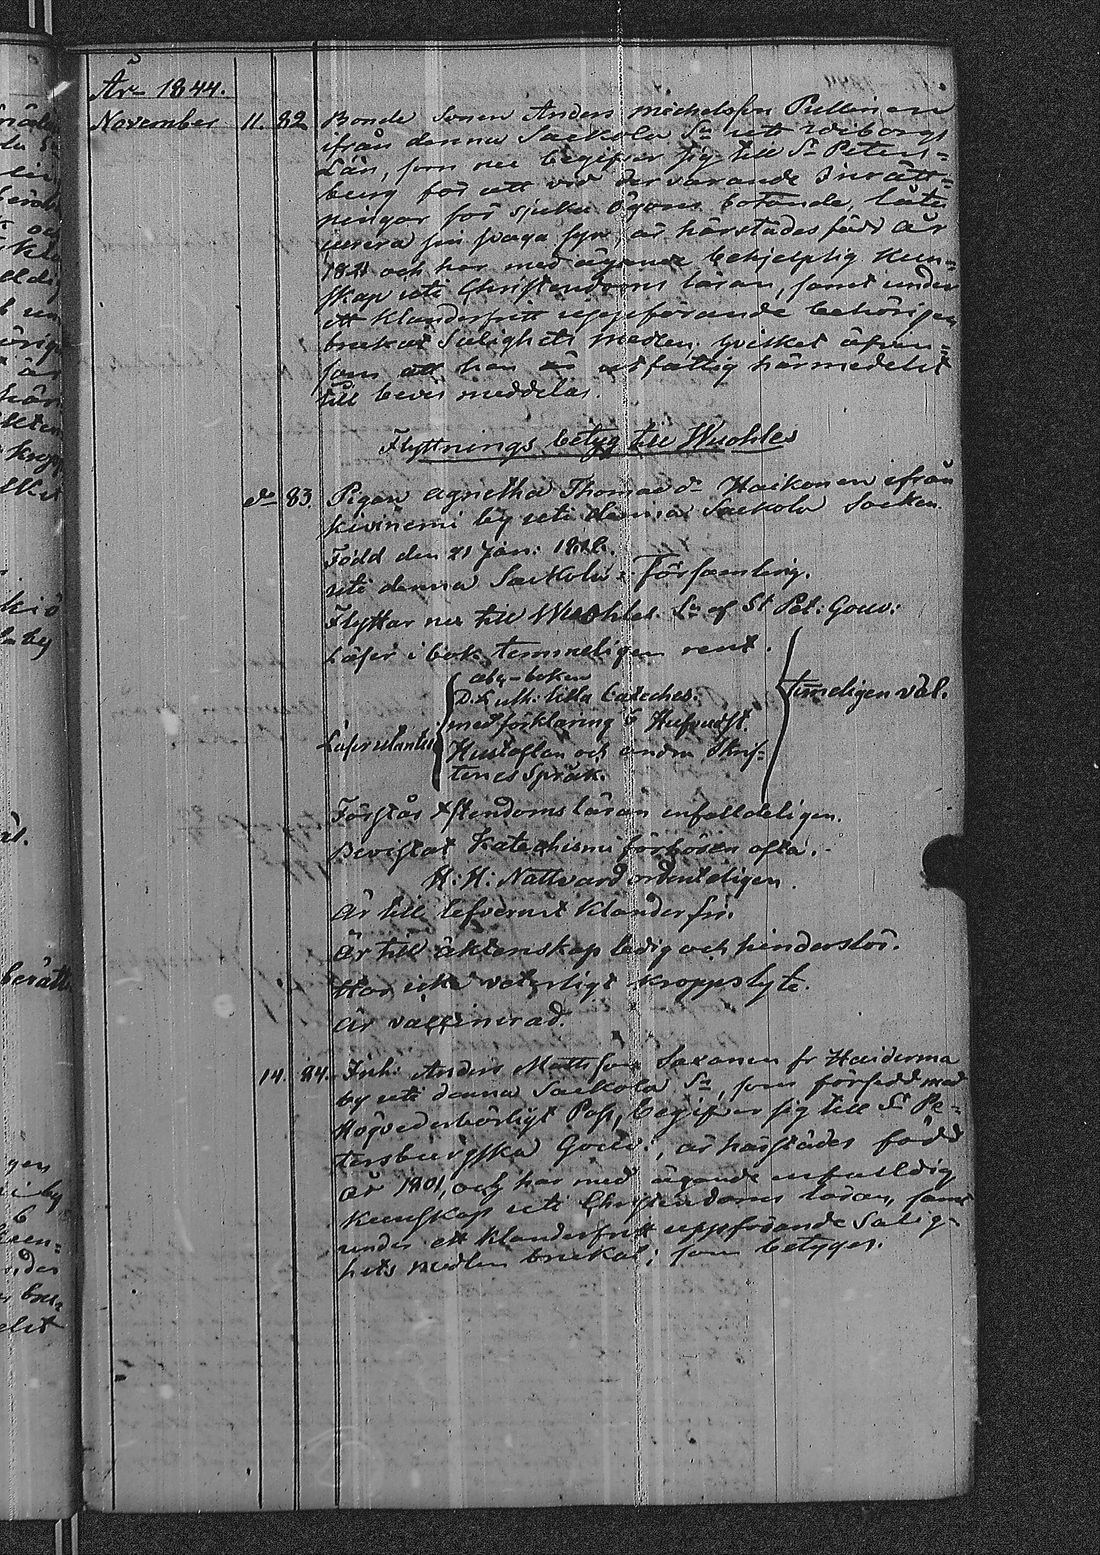 År 1844.
November 11. 82 Bonde Sonen Anders Michelsson Pullinen
ifrån denna Sackola Sn uti Wiborgs
Län, som nu begifver sig till St Peters=
burg för att vid dervarande Inrätt=
ningar för sjuka ögons botande, låta
curera sin svaga syn, är härstädes född år
och har med ägande behjelplig Kun=
skap uti Christendoms läran, samt under
ett klanderfritt uppförande behörigen
brukat Salighets medlen; hvilket äfven=
som att han är fattig härmedelst
till bevis meddelas.
Flyttnings betyg till Wuohles
do 83. Pigan Agnetha Thomae dr Haikonen ifrån
Kivinemi by uti denna Sackola Socken.
Född den 21 Jan:
uti denna Sackola Församling.
Flyttar nu till Wuohles Sn af St Pet: Gouv:
Läser i bok temmeligen rent.
Läser utantill
abc-boken
D. Luth: lilla Cateches.
med förklaring
Hustaflan och andra Skrif=
tenes Språk.
timeligen väl.
Förstår Xstendoms läran enfalldeligen.
Bevistat Katechismi förhören ofta.
H: H: Nattvard ordenteligen.
Är till lefvernet klanderfri.
Är till äktenskap ledig och hinderslös.
Har icke veterligt kroppslyte.
Är vaccinerad.
14. 84. Inh: Anders Mattsson Saxanen fr Haiderma
by uti denna Sackola Sn, som försedd med
Högvederbörligt Pass, begifver sig till St Pe=
tersburgska Gouv:, är härstädes född
år 1801, och har med ägande enfalldig
Kunskap uti Christendoms läran, samt
under ett klanderfritt uppförande Salig=
hets medlen brukat; som betygas.